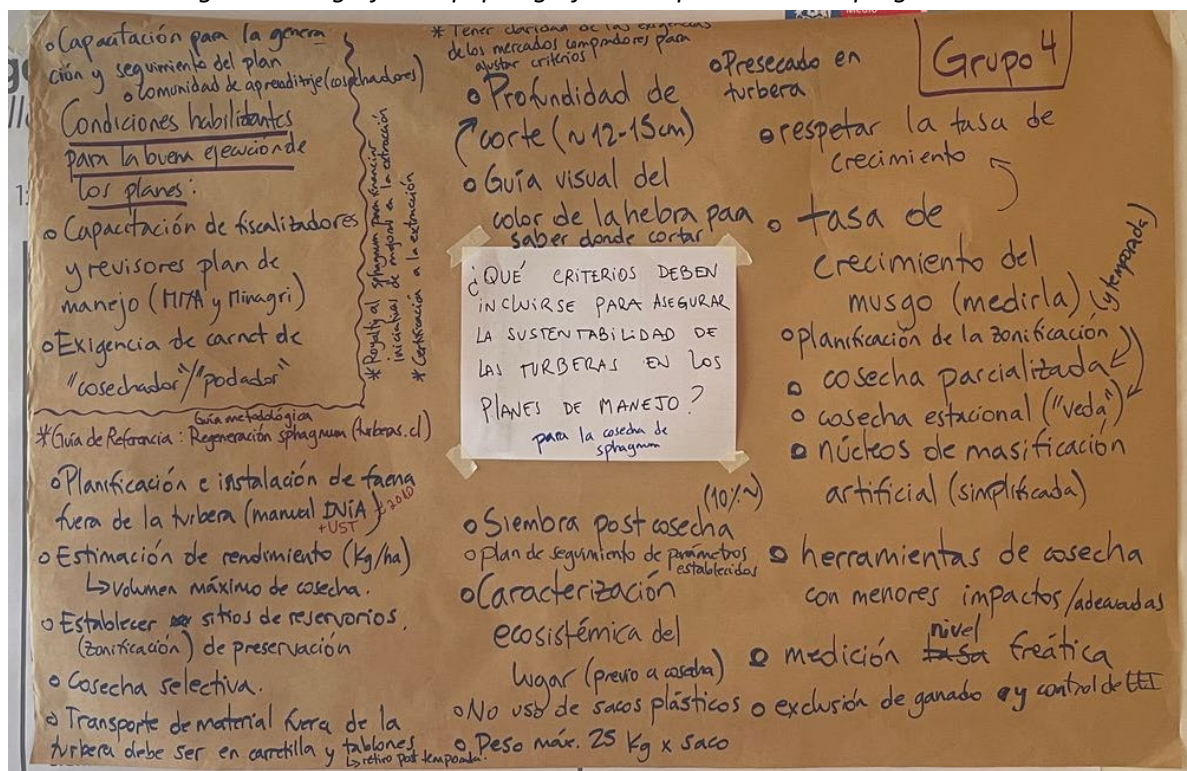 Medio
Grupo 4
o Capacitación para la genera
ción y seguimiento del plan
o Comunidad de aprendizaje (cosechadores)
Condiciones habilitantes
para la buena ejecución de
los planes:
o Capacitación de fiscalizadores
y revisores plan de
manejo (MMA y Minagri)
o Exigencia de carnet de
"cosechador"/"podador"
* Royalty al sphagnum para financiar
iniciativas de mejoras en la extracción
* Certificación a la extracción
Guía metodológica
* Guía de Referencia: Regeneración sphagnum (turberas.cl)
o Planificación e instalación de faena
fuera de la turbera (manual INIA)
+UST
o Estimación de rendimiento (Kg/ha)
↳ volumen máximo de cosecha.
o Establecer sitios de reservorios.
(zonificación) de preservación
o Cosecha selectiva.
o Transporte de material fuera de la
turbera debe ser en carretilla y tablones
↳ retiro post temporada.
* Tener claridad de las exigencias
de los mercados compradores para
ajustar criterios
o Profundidad de
corte (~12-15cm)
o Guía visual del
color de la hebra para
saber donde cortar
¿QUÉ CRITERIOS DEBEN
INCLUIRSE PARA ASEGURAR
LA SUSTENTABILIDAD DE
LAS TURBERAS EN LOS
PLANES DE MANEJO?
para la cosecha de
sphagnum
(10%~)
o Siembra post cosecha
o plan de seguimiento de parámetros
establecidos
o Caracterización
ecosistémica del
lugar (previo a cosecha)
o No uso de sacos plásticos
o Peso máx. 25 Kg x saco
o Presecado en
turbera
o respetar la tasa de
crecimiento
o tasa de
crecimiento del
musgo (medirla) (y temporada)
o planificación de la zonificación
o cosecha parcializada
o cosecha estacional ("veda")
o núcleos de masificación
artificial (simplificada)
o herramientas de cosecha
con menores impactos/adecuadas
o medición nivel freática
o exclusión de ganado y control de EEI